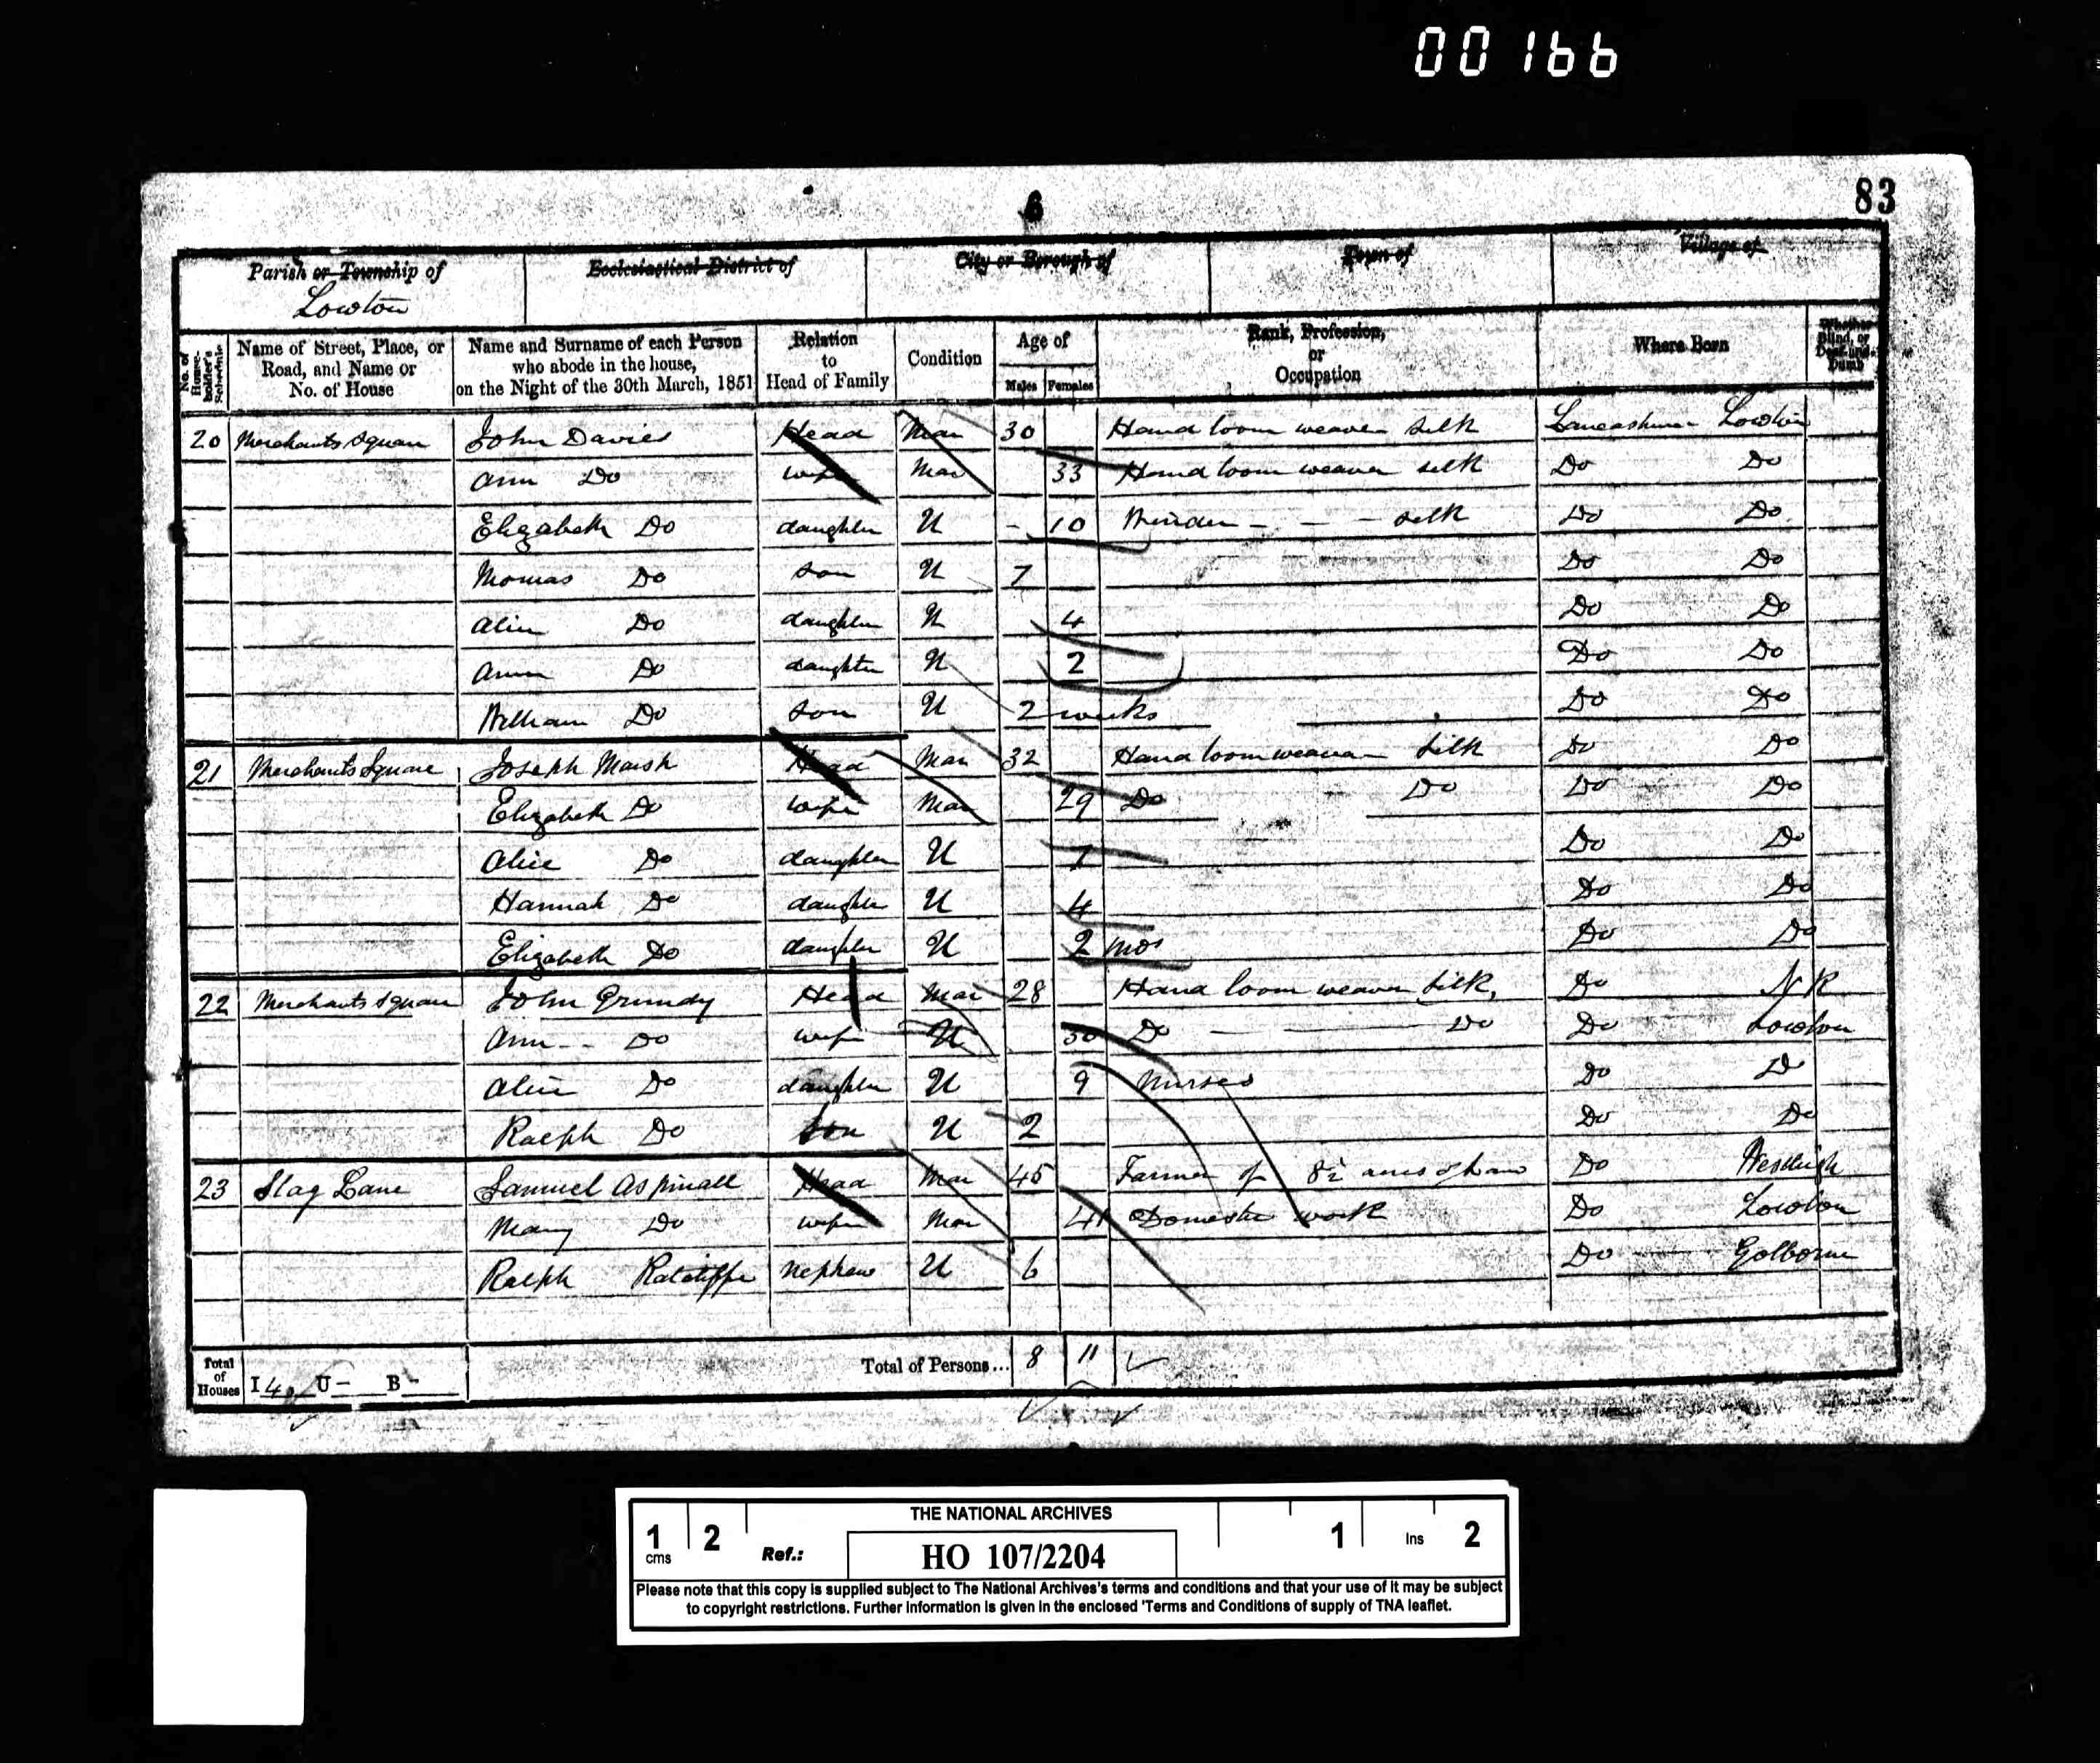 00166
6
83
Parish or Township of
Lowton
Ecclesiastical District of
City or Borough of
Town of
Village of
No. of House-holder's Schedule
Name of Street, Place, or Road, and Name or No. of House
Name and Surname of each Person who abode in the house, on the Night of the 30th March, 1851
Relation to Head of Family
Condition
Age of
Males Females
Rank, Profession, or Occupation
Where Born
Whether Blind, or Deaf-and-Dumb
20 Merchants Square John Davies Head Mar 30 Hand loom weaver silk Lancashire Lowton
Ann Do wife Mar 33 Hand loom weaver silk Do Do
Elizabeth Do daughter U - 10 Winder - - - silk Do Do
Thomas Do son U 7 Do Do
Alice Do daughter U 4 Do Do
Ann Do daughter U 2 Do Do
William Do son U 2 weeks Do Do
21 Merchants Square Joseph Marsh Head Mar 32 Hand loom weaver silk Do Do
Elizabeth Do wife Mar 29 Do Do Do Do
Alice Do daughter U 7 Do Do
Hannah Do daughter U 4 Do Do
Elizabeth Do daughter U 2 mos Do Do
22 Merchants Square John Grundy Head Mar 28 Hand loom weaver silk, Do N K
Ann Do wife U 30 Do Do Do Lowton
Alice Do daughter U 9 Nurses Do Do
Ralph Do Son U 2 Do Do
23 Slag Lane Samuel Aspinall Head Mar 45 Farmer of 8½ acres of Do Westleigh
Mary Do wife Mar 41 Domestic work Do Lowton
Ralph Ratcliffe nephew U 6 Do Golborne
Total of Houses I 4 U - B -
Total of Persons... 8 11
THE NATIONAL ARCHIVES
1 cms 2 Ref.: HO 107/2204 1 Ins 2
Please note that this copy is supplied subject to The National Archives's terms and conditions and that your use of it may be subject
to copyright restrictions. Further information is given in the enclosed 'Terms and Conditions of supply of TNA leaflet.